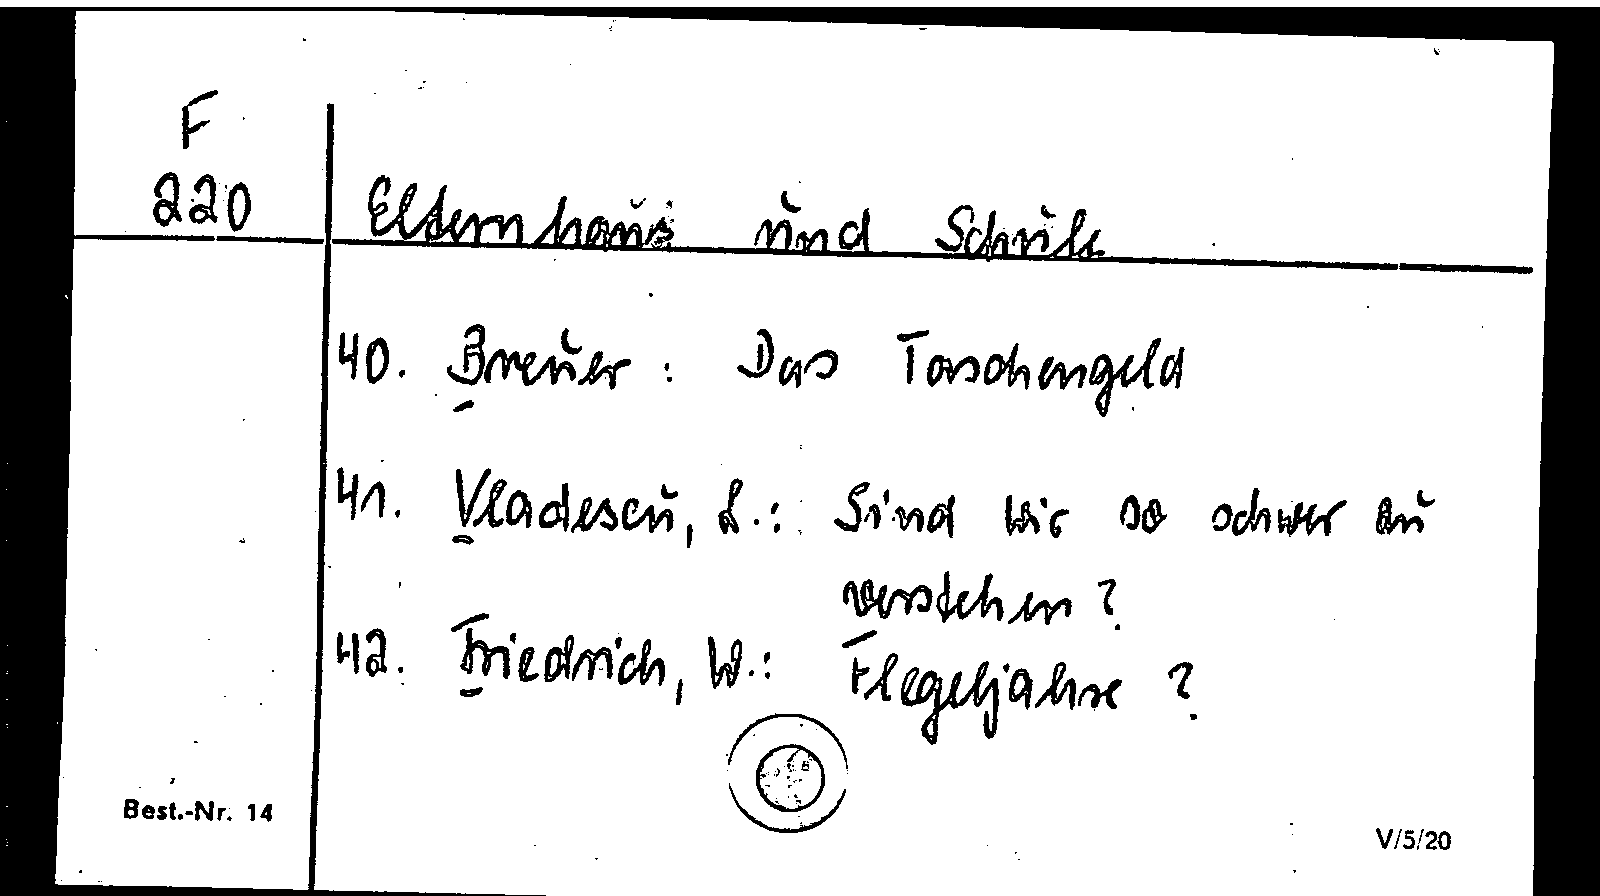 F
220
Elternhaus und Schule
40. Breuer: Das Taschengeld
41. Vladescu, L.: Sind wir so schwer zu
verstehen?
42. Friedrich, W.: Flegeljahre?
Best.-Nr. 14
V/5/20